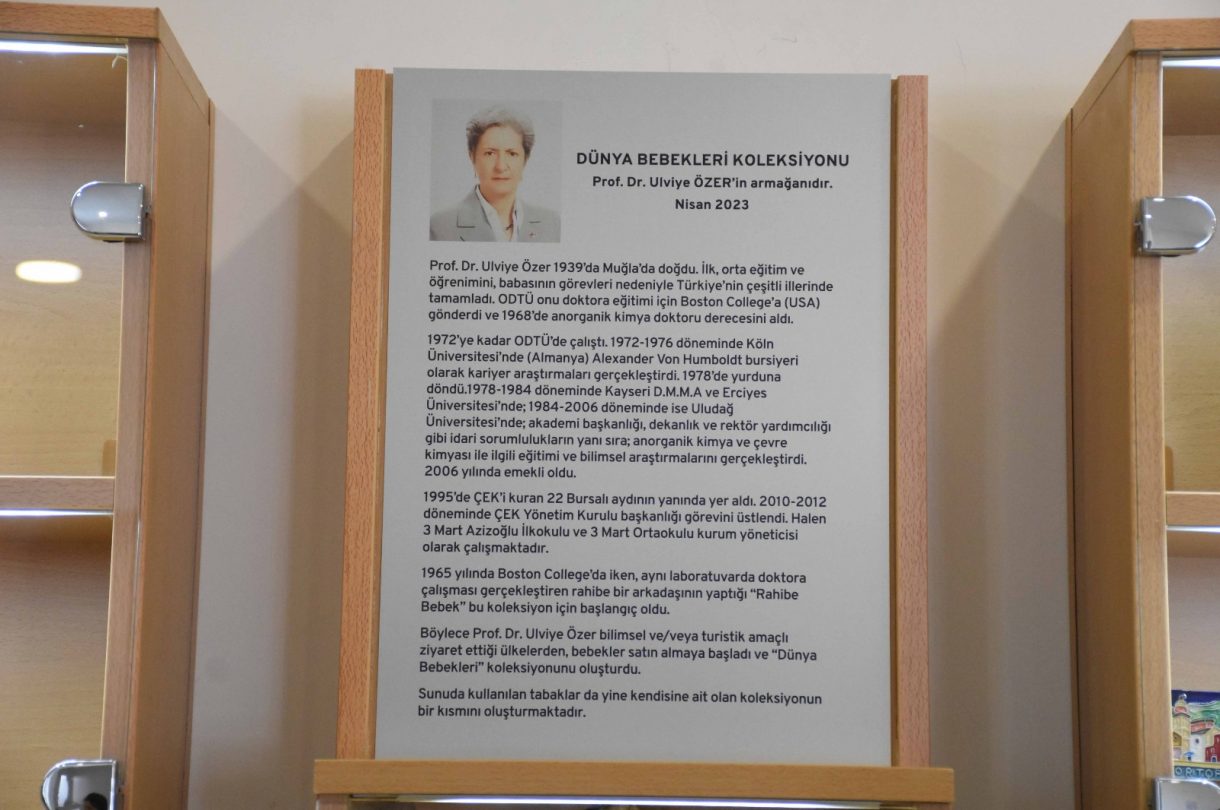 DÜNYA BEBEKLERİ KOLEKSİYONU
Prof. Dr. Ulviye ÖZER'in armağanıdır.
Nisan 2023
Prof. Dr. Ulviye Özer 1939'da Muğla'da doğdu. İlk, orta eğitim ve
öğrenimini, babasının görevleri nedeniyle Türkiye'nin çeşitli illerinde
tamamladı. ODTÜ onu doktora eğitimi için Boston College'a (USA)
gönderdi ve 1968'de anorganik kimya doktoru derecesini aldı.
1972'ye kadar ODTÜ'de çalıştı. 1972-1976 döneminde Köln
Üniversitesi'nde (Almanya) Alexander Von Humboldt bursiyeri
olarak kariyer araştırmaları gerçekleştirdi. 1978'de yurduna
döndü.1978-1984 döneminde Kayseri D.M.M.A ve Erciyes
Üniversitesi'nde; 1984-2006 döneminde ise Uludağ
Üniversitesi'nde; akademi başkanlığı, dekanlık ve rektör yardımcılığı
gibi idari sorumlulukların yanı sıra; anorganik kimya ve çevre
kimyası ile ilgili eğitimi ve bilimsel araştırmalarını gerçekleştirdi.
2006 yılında emekli oldu.
1995'de ÇEK'i kuran 22 Bursalı aydının yanında yer aldı. 2010-2012
döneminde ÇEK Yönetim Kurulu başkanlığı görevini üstlendi. Halen
3 Mart Azizoğlu İlkokulu ve 3 Mart Ortaokulu kurum yöneticisi
olarak çalışmaktadır.
1965 yılında Boston College'da iken, aynı laboratuvarda doktora
çalışması gerçekleştiren rahibe bir arkadaşının yaptığı “Rahibe
Bebek” bu koleksiyon için başlangıç oldu.
Böylece Prof. Dr. Ulviye Özer bilimsel ve/veya turistik amaçlı
ziyaret ettiği ülkelerden, bebekler satın almaya başladı ve “Dünya
Bebekleri” koleksiyonunu oluşturdu.
Sunuda kullanılan tabaklar da yine kendisine ait olan koleksiyonun
bir kısmını oluşturmaktadır.